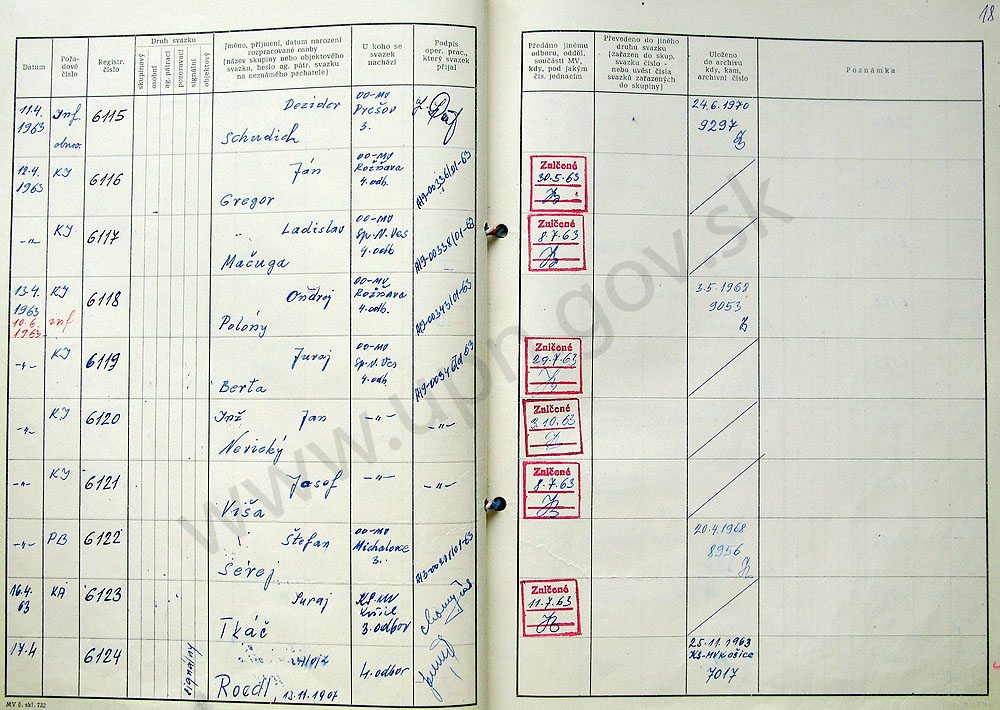 18
Datum
Pořadové číslo
Registr. číslo
Druh svazku
skupinový
osobní
ag. pátrací
pozorovací
signální
objektový
Jméno, příjmení, datum narození
rozpracované osoby
(název skupiny nebo objektového
svazku, heslo ag. pátr. svazku
na neznámého pachatele)
U koho se
svazek
nachází
Podpis
oper. prac.,
který svazek
přijal
Předáno jinému
odboru, odděl.
součásti MV,
kdy, pod jakým
čís. jednacím
Převedeno do jiného
druhu svazku
(zařazen do skup.
svazku číslo -
nebo uvést čísla
svazků zařazených
do skupiny)
Uloženo
do archivu
kdy, kam,
archivní číslo
Poznámka
11.4. 1963
Inf. obnov.
6115
Dezider
Schudich
OO-MV
Prešov
3.
24.6.1970
9297
12.4. 1963
KI
6116
Ján
Gregor
OO-MV
Rožňava
4. odb.
A19-00336/01-63
Zničené
30.5.63
-"-
KI
6117
Ladislav
Mačuga
OO-MV
Sp. N. Ves
4. odb
A19-00338/01-63
Zničené
8.7.63
13.4. 1963
10.6. 1963
KI
inf
6118
Ondrej
Polóny
OO-MV
Rožňava
4. odb.
A19-00343/01-63
3.5.1968
9053
-"-
KI
6119
Juraj
Berta
OO-MV
Sp. N. Ves
4. odb
Zničené
29.7.63
-"-
KI
6120
Inž Jan
Novický
-"-
-"-
Zničené
3.10.63
-"-
KI
6121
Jozef
Viša
-"-
-"-
Zničené
8.7.63
-"-
PB
6122
Štefan
Šerej
OO-MV
Michalovce
3.
20.4.1968
8956
16.4. 63
KA
6123
Juraj
Tkáč
KS-MV
3. odbor
Zničené
11.7.63
17.4
6124
signálny
Roedl, 13.11.1907
4. odbor
25.11.1963
KS-MV Košice
7017
MV č. skl. 732
www.upn.gov.sk